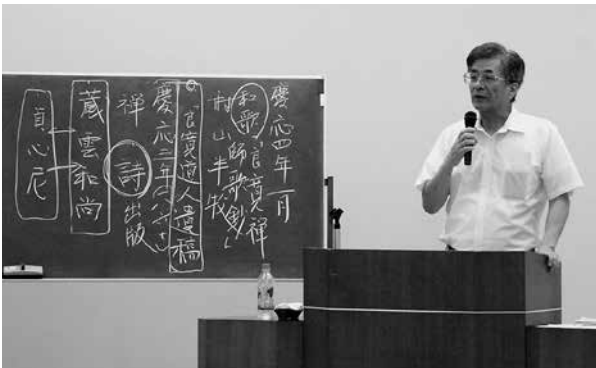 慶応四年一月
和歌「良寛禅
師歌鈔」
村山半牧
「良寛道人遺稿
慶応三年
禅 詩 出版
蔵雲和尚
貞心尼